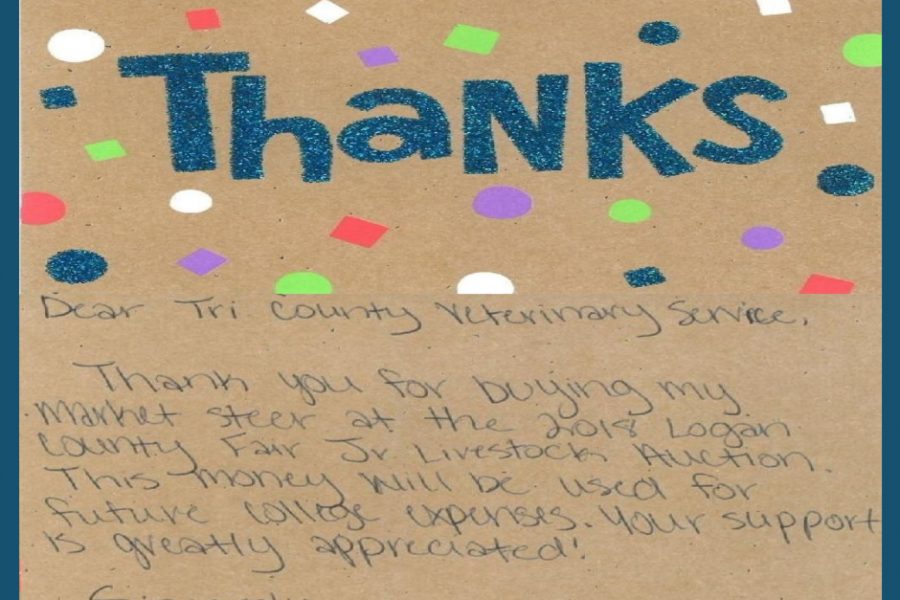 Thanks
Dear Tri County Veterinary Service,
Thank you for buying my
market steer at the 2018 Logan
County Fair Jr Livestock Auction.
This money will be used for
future college expenses. Your support
is greatly appreciated!